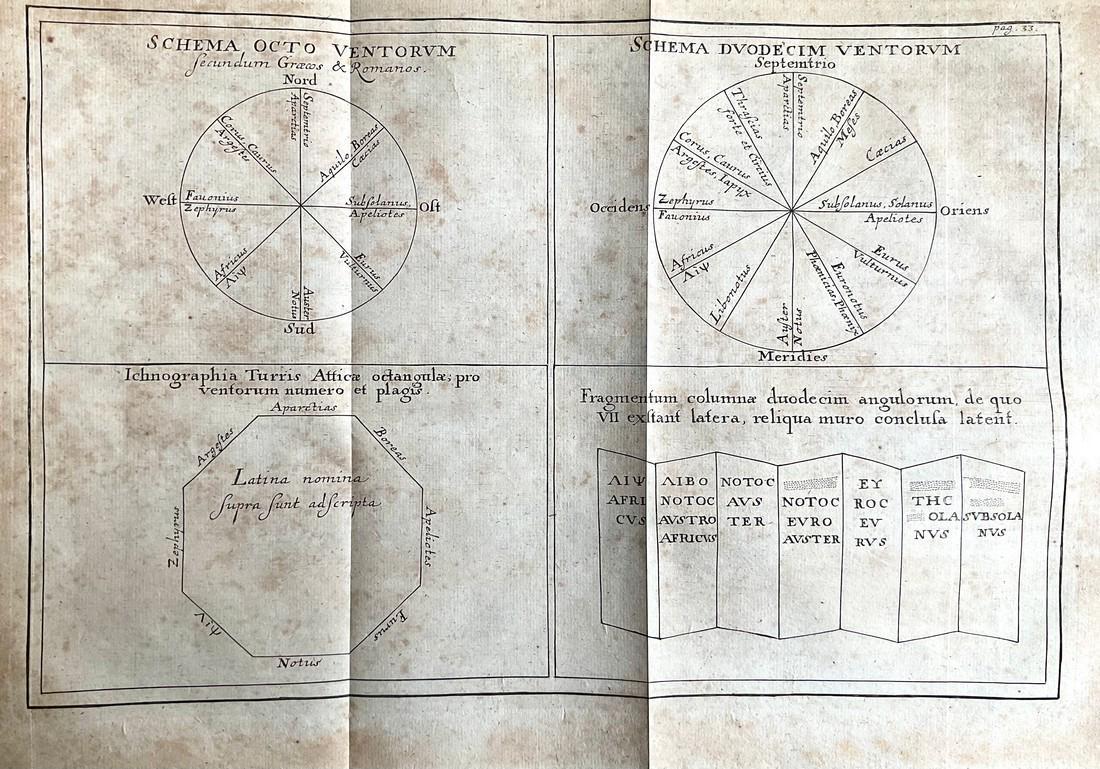 pag. 33.
SCHEMA OCTO VENTORVM
ſecundum Græcos & Romanos.
Nord
Septemtrio
Aparctias
Aquilo, Boreas
Cæcias
Subſolanus,
Apeliotes
Oſt
Eurus
Vulturnus
Auster
Notus
Sud
Africus
ΛΙΨ
Weſt
Fauonius
Zephyrus
Corus, Caurus
Argeſtes
SCHEMA DVODECIM VENTORVM
Septemtrio
Septemtrio
Aparctias
Aquilo, Boreas
Meſes
Cæcias
Subſolanus, Solanus
Apeliotes
Oriens
Eurus
Vulturnus
Euronotus
Phœnicias, Phœnix
Auſter
Notus
Meridies
Libonotus
Africus
ΛΙΨ
Occidens
Zephyrus
Fauonius
Corus, Caurus
Argeſtes, Iapyx
Thraſcias
forte et Circius
Ichnographia Turris Atticæ octangulæ, pro
ventorum numero et plagis.
Aparctias
Boreas
Apeliotes
Eurus
Notus
ΛΙΨ
Zephyrus
Argeſtes
Latina nomina
ſupra ſunt adſcripta
Fragmentum columnæ duodecim angulorum, de quo
VII exſtant latera, reliqua muro concluſa latent.
ΛΙΨ
AFRI
CVS
ΛΙΒΟ
ΝΟΤΟC
AVSTRO
AFRICVS
ΝΟΤΟC
AVS
TER
ΝΟΤΟC
EVRO
AVSTER
ΕΥ
ΡΟC
EV
RVS
ΤΗC
OLA
NVS
SVBSOLA
NVS